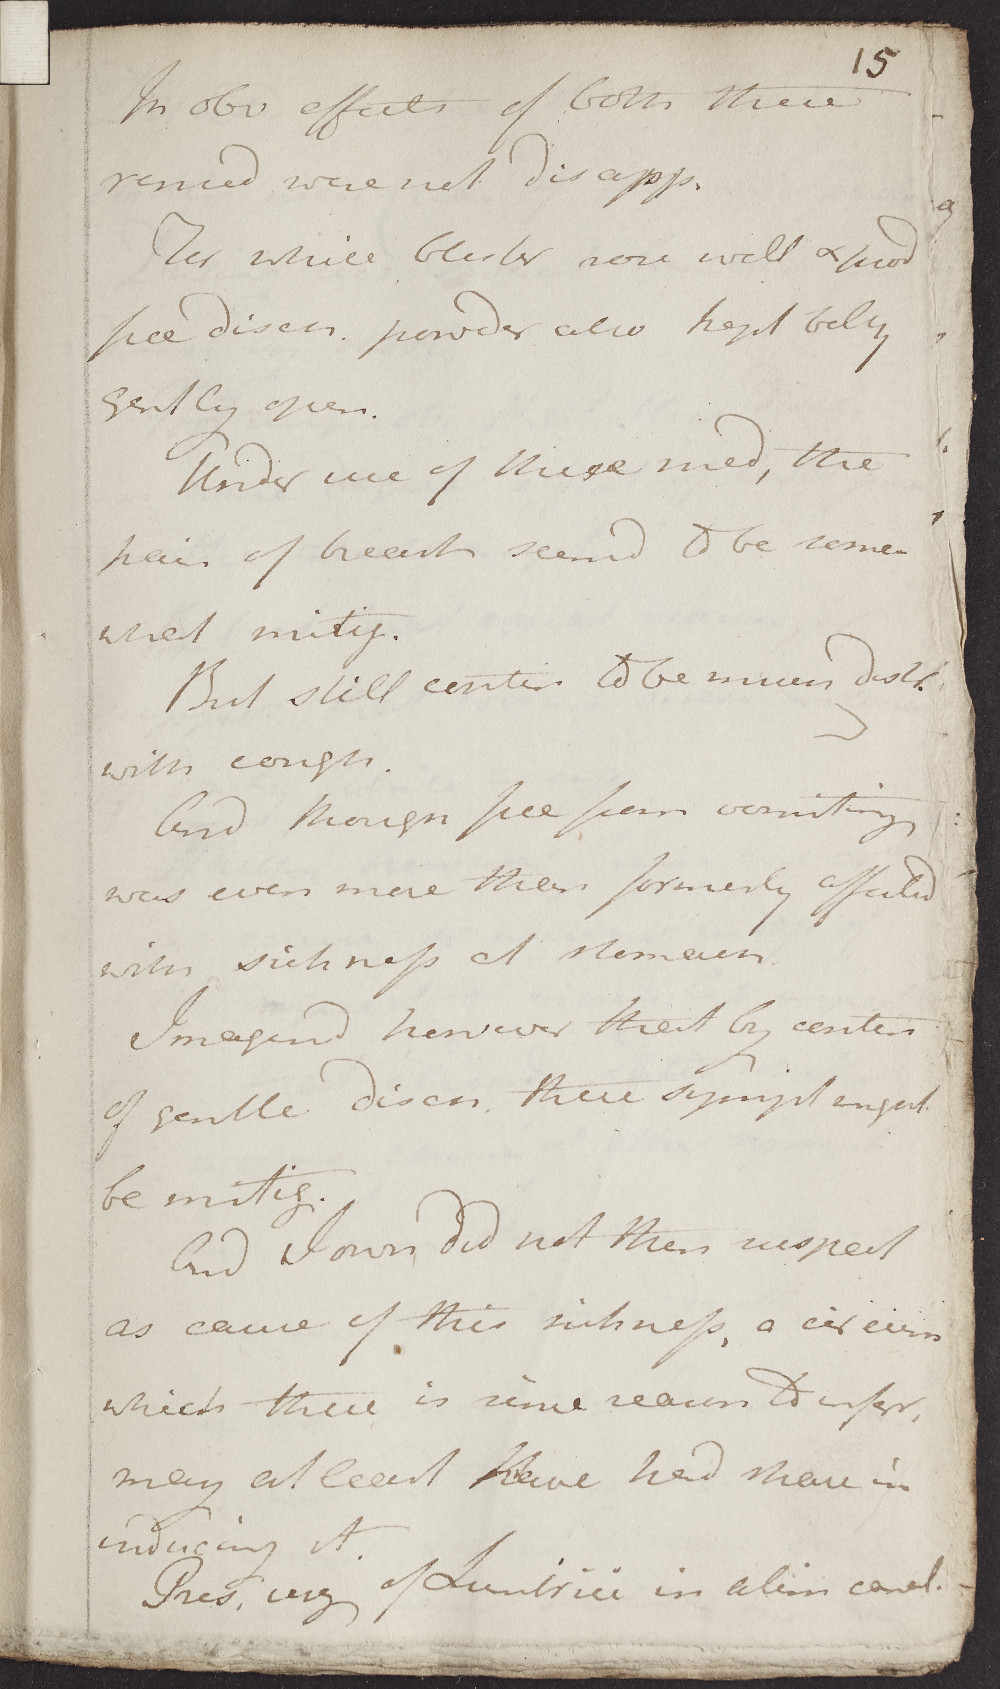 15
In obv effects of both these
remed were not disapp.
For while blister rose well & prod
free discn. powder also kept belly
gently open.
Under use of these med, the
pain of breast seemd to be some
what mitig.
But still contin to be much dist.
with cough.
And though free from vomiting
was even more than formerly affected
with sickness at stomach
Imagend however that by contin
of gentle discn. these sympt might
be mitig.
And I own did not then suspect
as cause of this sickness, a circum
which there is some reason to infer,
may at least have had share in
inducing it.
Pres, of Lumbrici in alim canal.